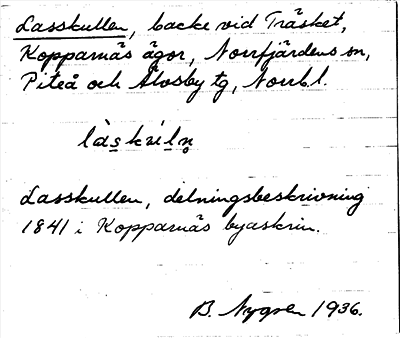 Lasskullen, backe vid Träsket,
Kopparnäs ägor, Norrfjärdens sn,
Piteå och Älvsby tg, Norrb.l.
Lasskullen, delningsbeskrivning
1841 i Kopparnäs byaskrin.
B. Nygren 1936.